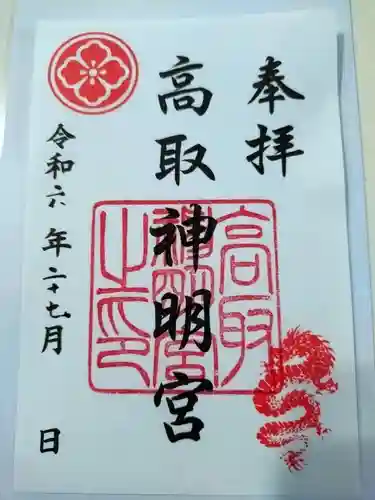 奉拝
高取神明宮
令和六年二十七月 日
高取
神明宮
之印